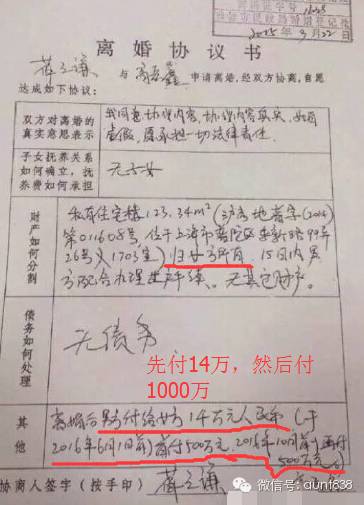 2015年9月22日
离婚协议书
薛之谦 与 高磊鑫 申请离婚,经双方协商,自愿
达成如下协议:
双方对离婚的
真实意思表示
我同意协议内容,协议内容真实,如有
虚假,愿承担一切法律责任.
子女抚养关系
如何确立,抚
养费如何承担
无子女
财产如何
分割
私有住宅楼123.34m²(沪房地普字(2014)
第011608号,位于上海市普陀区李新路99弄
26号1703室)归女方所有.15日内男
方配合办理过户手续.无其它财产.
债务如何
处理
无债务
先付14万,然后付
1000万
其他
离婚后男方付给女方14万元人民币(于
2016年6月1日前)首付500万,2016年10月前再付
500万元
协商人签字(按手印) 薛之谦
微信号:qunf638